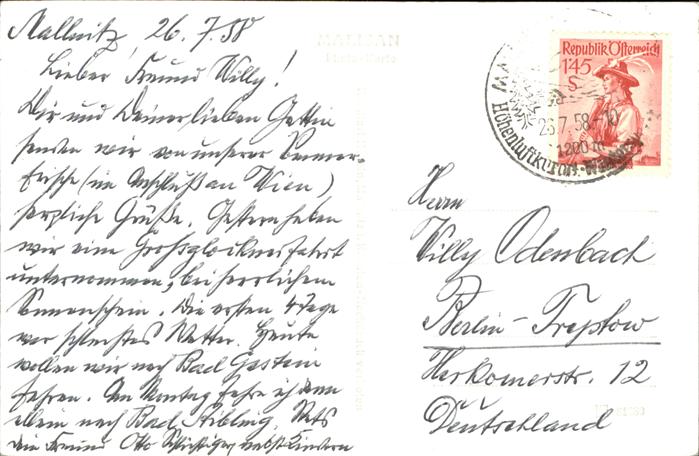 Mallnitz, 26.7.58
Lieber Freund Willy!
Dir und Deiner lieben Gattin
senden wir von unserer Sommer-
frische (im Anschluß an Wien)
herzliche Grüße. Gestern haben
wir eine Großglocknerfahrt
unternommen, bei herrlichem
Sonnenschein. Die ersten 4 Tage
war schlechtes Wetter. Heute
wollen wir nach Bad Gastein
fahren. Am Montag fahre ich dann
allein nach Bad Aibling. Stets
Dein Freund Otto nebst Kindern
Republik Österreich
1'45
S
26.7.58-10
1200 m
Höhenluftkurort
Herrn
Willy Odenbach
Berlin-Treptow
Herkomerstr. 12
Deutschland